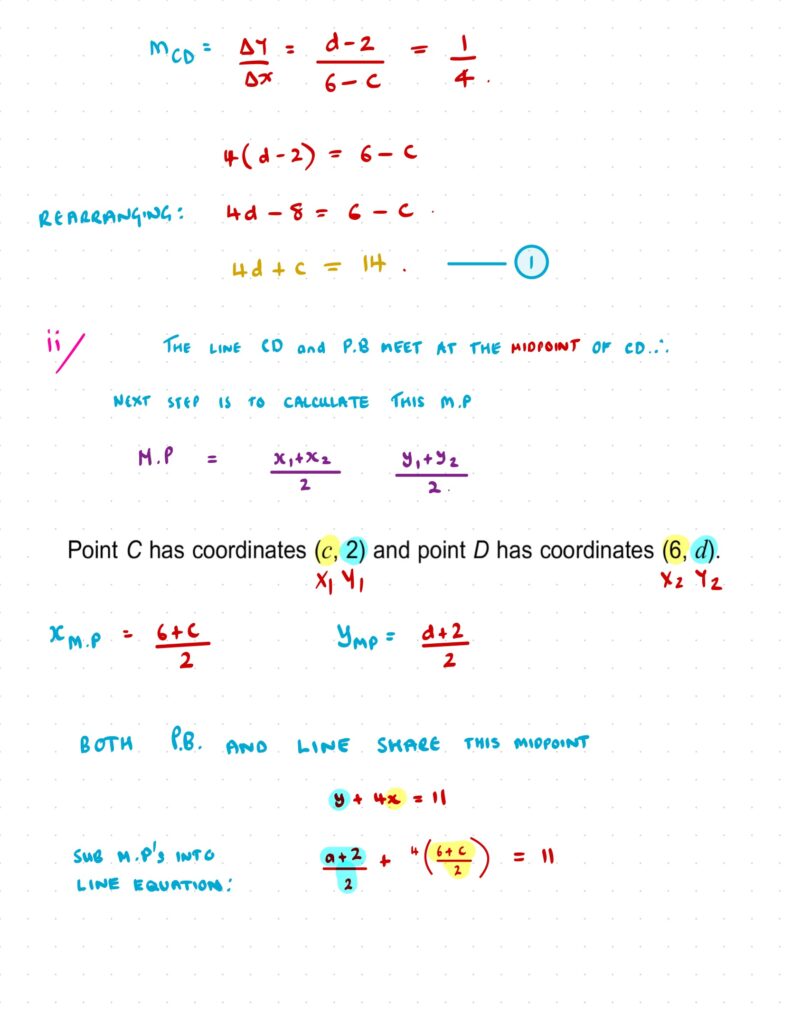 m_CD = ΔY/Δx = (d-2)/(6-c) = 1/4.
4(d-2) = 6-c
REARRANGING: 4d-8 = 6-c.
4d+c = 14. —— ①
ii/ THE LINE CD and P.B MEET AT THE MIDPOINT OF CD ∴
NEXT STEP IS TO CALCULATE THIS M.P
M.P = (x₁+x₂)/2 (y₁+y₂)/2.
Point C has coordinates (c, 2) and point D has coordinates (6, d).
X₁ Y₁ X₂ Y₂
x_M.P = (6+c)/2 y_MP = (d+2)/2
BOTH P.B. AND LINE SHARE THIS MIDPOINT
y + 4x = 11
SUB M.P's INTO LINE EQUATION: (a+2)/2 + 4((6+c)/2) = 11